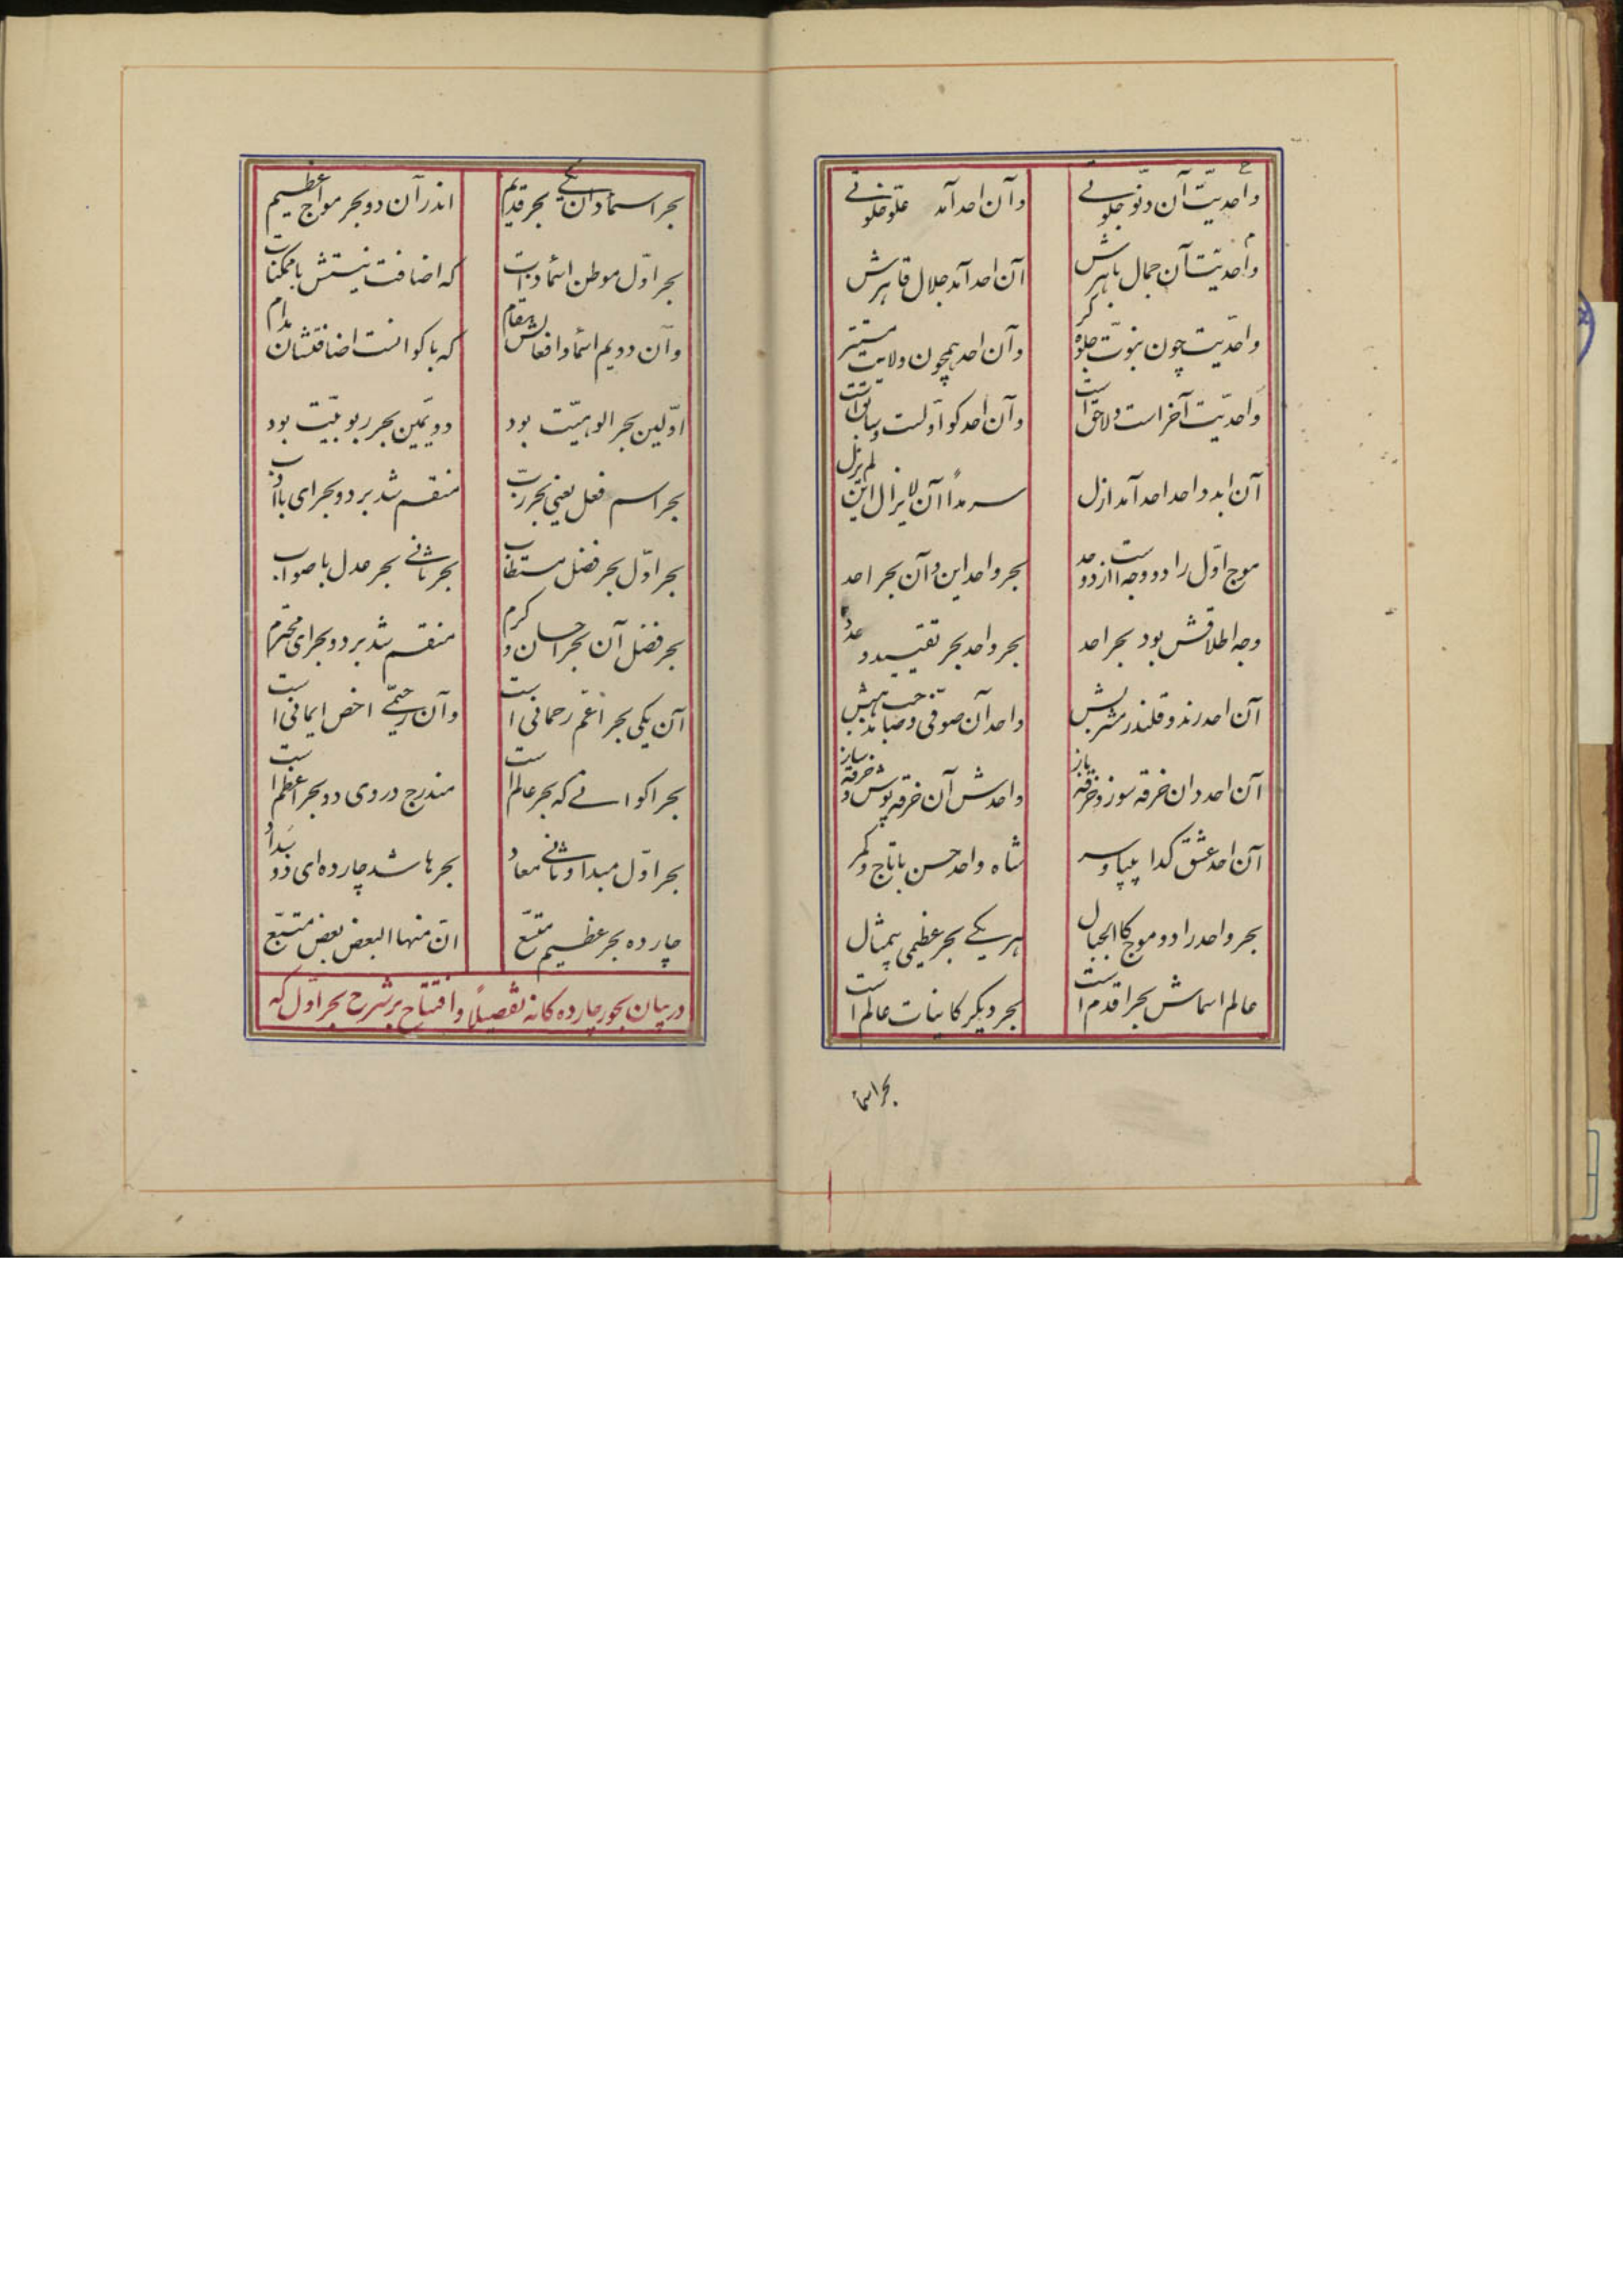 واحدیّت آن دنوّ جلوتی وآن احد آمد علوّ خلوتی
واحدیّت آن جمال باهرش آن احد آمد جلال قاهرش
واحدیّت چون نبوّت جلوه‌کر وآن احد همچون ولایت مستتر
واحدیّت آخر است و لاحق است وآن احد کو اوّلست و سابق است
آن ابد واحد احد آمد ازل سرمداً آن لایزال این لم یزل
موج اوّل را دو وجه است از دو حد بحر واحد این وآن بحر احد
وجه اطلاقش بود بحر احد بحر واحد بحر تقیید و عدد
آن احد رند و قلندر مشربش واحد آن صوفی و صاحب مذهبش
آن احد دان خرقه سوز و خرقه باز واحدش آن خرقه پوش و خرقه ساز
آن احد عشق کدا بیپا و سر شاه واحد حسن با تاج و کمر
بحر واحد را دو موج کالجبال هر یکی بحر عظیمی بیمثال
عالم اسماش بحر اقدم است بحر دیکر کاینات عالم است
بحر اسماء
بحر اسما دان یکی بحر قدیم اندر آن دو بحر موّاج عظیم
بحر اوّل موطن اسماء ذات که اضافت نیستش با ممکنات
وآن دویم اسماء و افعالش مقام که با کوانست اضافتشان مدام
اوّلین بحر الوهیّت بود دویّمین بحر ربوبیّت بود
بحر اسم فعل یعنی بحر ربّ منقسم شد بر دو بحر ای با ادب
بحر اوّل بحر فضل مستطاب بحر ثانی بحر عدل با صواب
بحر فضل آن بحر احسان و کرم منقسم شد بر دو بحر ای محترم
آن یکی بحر اعمّ رحمانی است وآن رحیمی اخص ایمانی است
بحر اکوانی که بحر عالم است مندرج در وی دو بحر اعظم است
بحر اوّل مبدا و ثانی معاد بحرها شد چارده ای ذو سداد
چارده بحر عظیم متّسع انّ منها البعض بعض متّبع
در بیان بحور چارده کانه تفصیلاً وافتتاح بر شرح بحر اوّل که